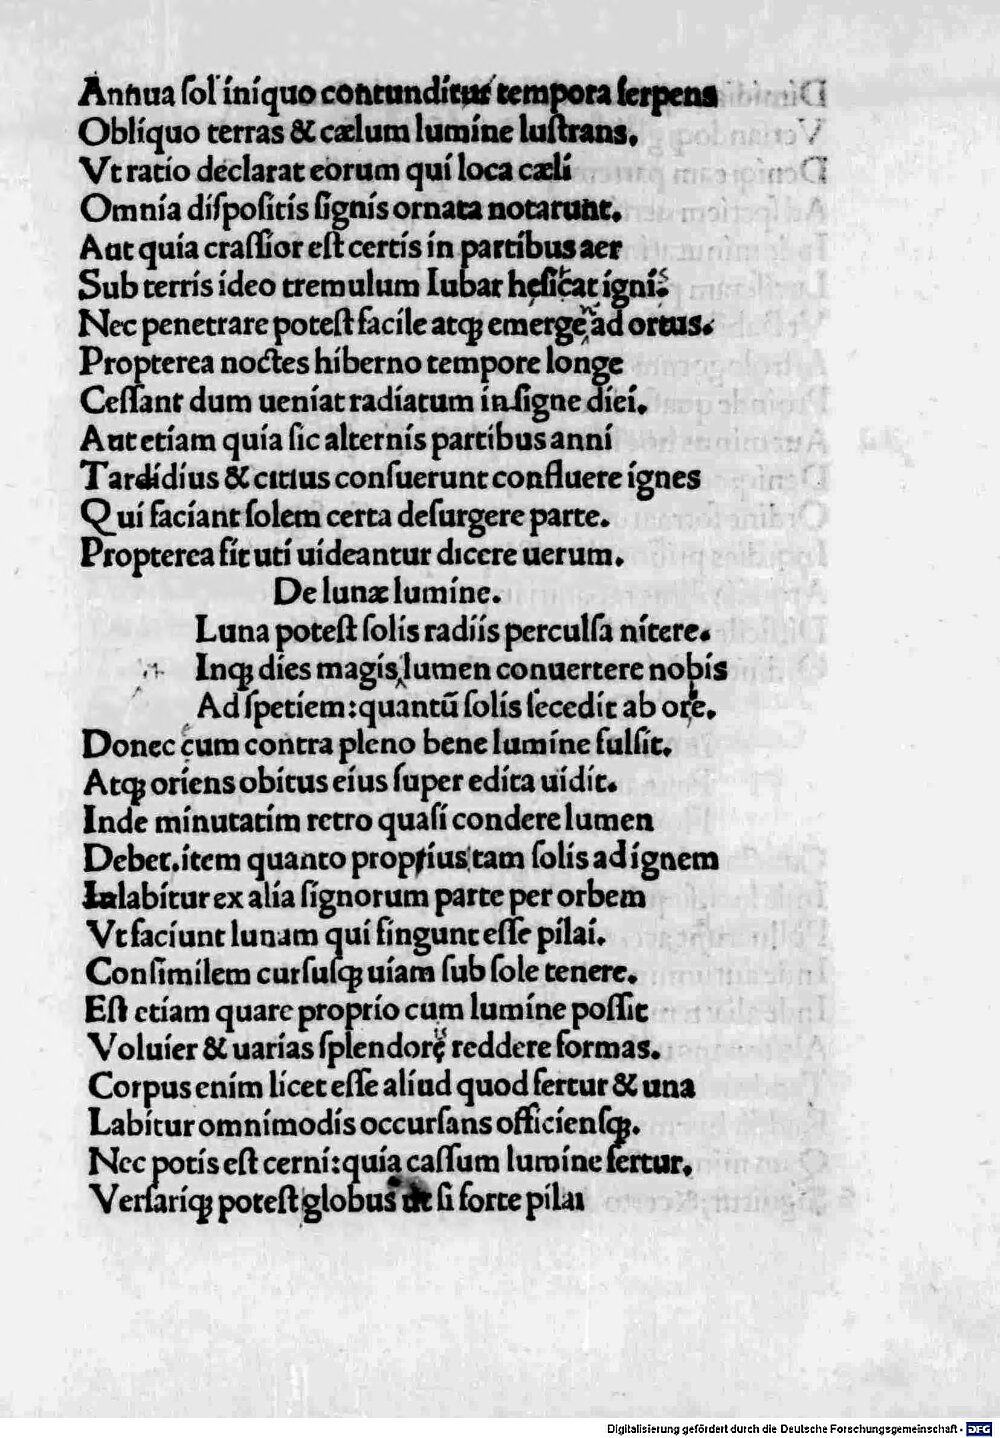 Annua ſol iniquo contunditur tempora ſerpens
Obliquo terras & cælum lumine luſtrans.
Vt ratio declarat eorum qui loca cæli
Omnia diſpoſitis ſignis ornata notarunt.
Aut quia craſſior eſt certis in partibus aer
Sub terris ideo tremulum Iubar hęſitat ignis
Nec penetrare poteſt facile atq; emergere ad ortus.
Propterea noctes hiberno tempore longe
Ceſſant dum ueniat radiatum inſigne diei.
Aut etiam quia ſic alternis partibus anni
Tardidius & citius conſuerunt confluere ignes
Qui faciant ſolem certa deſurgere parte.
Propterea fit uti uideantur dicere uerum.
De lunæ lumine.
Luna poteſt ſolis radiis perculſa nitere.
Inq; dies magis lumen conuertere nobis
Ad ſpetiem: quantū ſolis ſecedit ab ore.
Donec cum contra pleno bene lumine fulſit.
Atq; oriens obitus eius ſuper edita uidit.
Inde minutatim retro quaſi condere lumen
Debet. item quanto proprius tam ſolis ad ignem
Inlabitur ex alia ſignorum parte per orbem
Vt faciunt lunam qui fingunt eſſe pilai.
Conſimilem curſuſq; uiam ſub ſole tenere.
Eſt etiam quare proprio cum lumine poſſit
Voluier & uarias ſplendoris reddere formas.
Corpus enim licet eſſe aliud quod fertur & una
Labitur omnimodis occurſans officienſq;.
Nec potis eſt cerni: quia caſſum lumine fertur.
Verſariq; poteſt globus ut ſi forte pilai
Digitalisierung gefördert durch die Deutsche Forschungsgemeinschaft - DFG